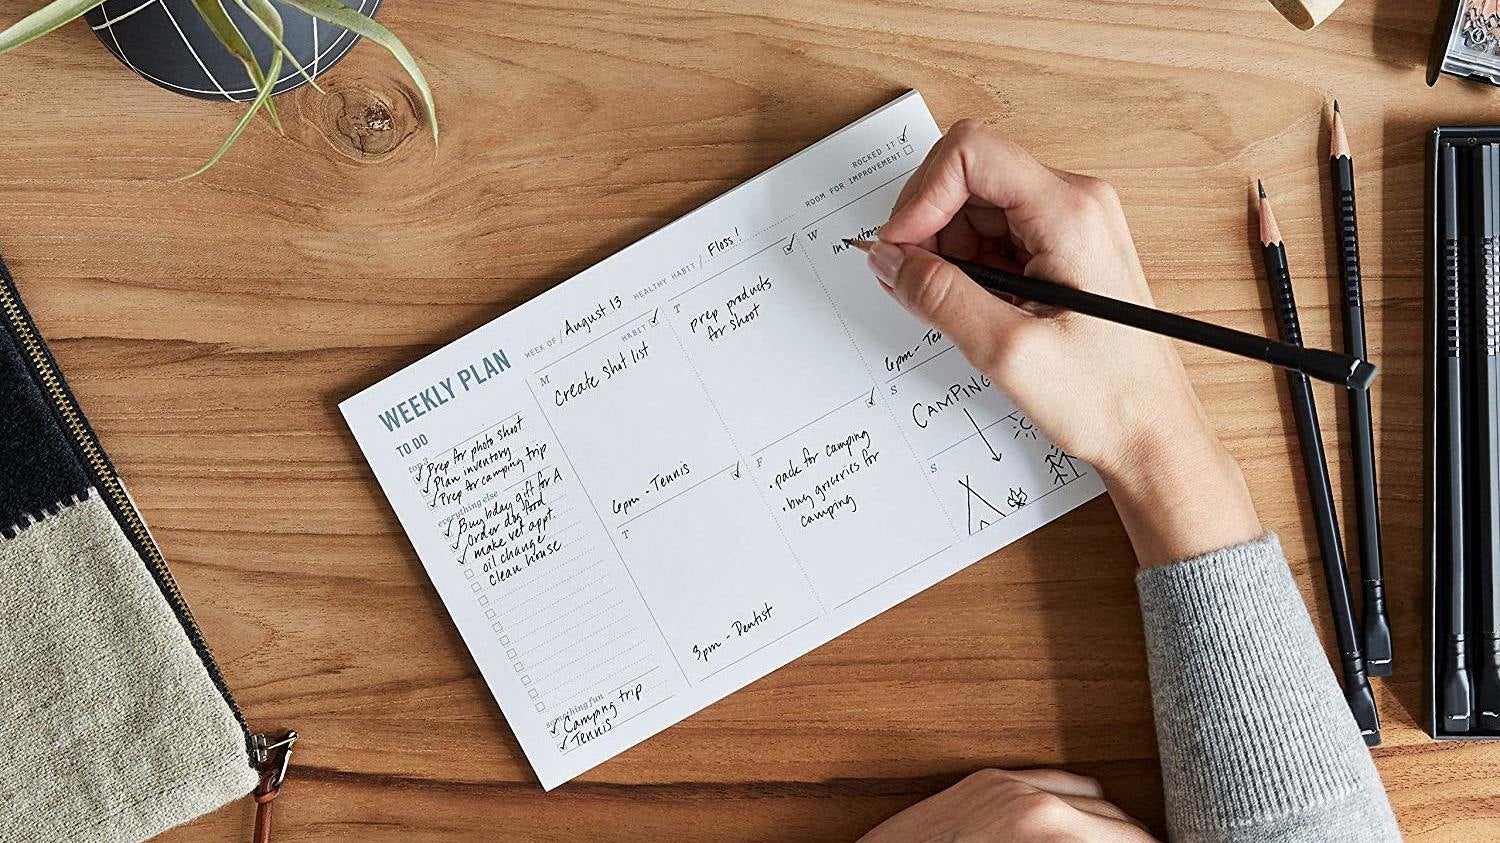 ROCKED IT
ROOM FOR IMPROVEMENT
WEEKLY PLAN
WEEK OF / August 13
HEALTHY HABIT / Floss!
TO DO
top 3
Prep for photo shoot
Plan inventory
Prep for camping trip
everything else
Buy bday gift for A
Order dog food
make vet appt.
oil change
Clean house
something fun
Camping trip
Tennis
HABIT
M
Create shot list
6pm - Tennis
T
prep products
for shoot
W
inventory
6pm - Ten
T
3pm - Dentist
F
• pack for camping
• buy groceries for
camping
S
CAMPING
S